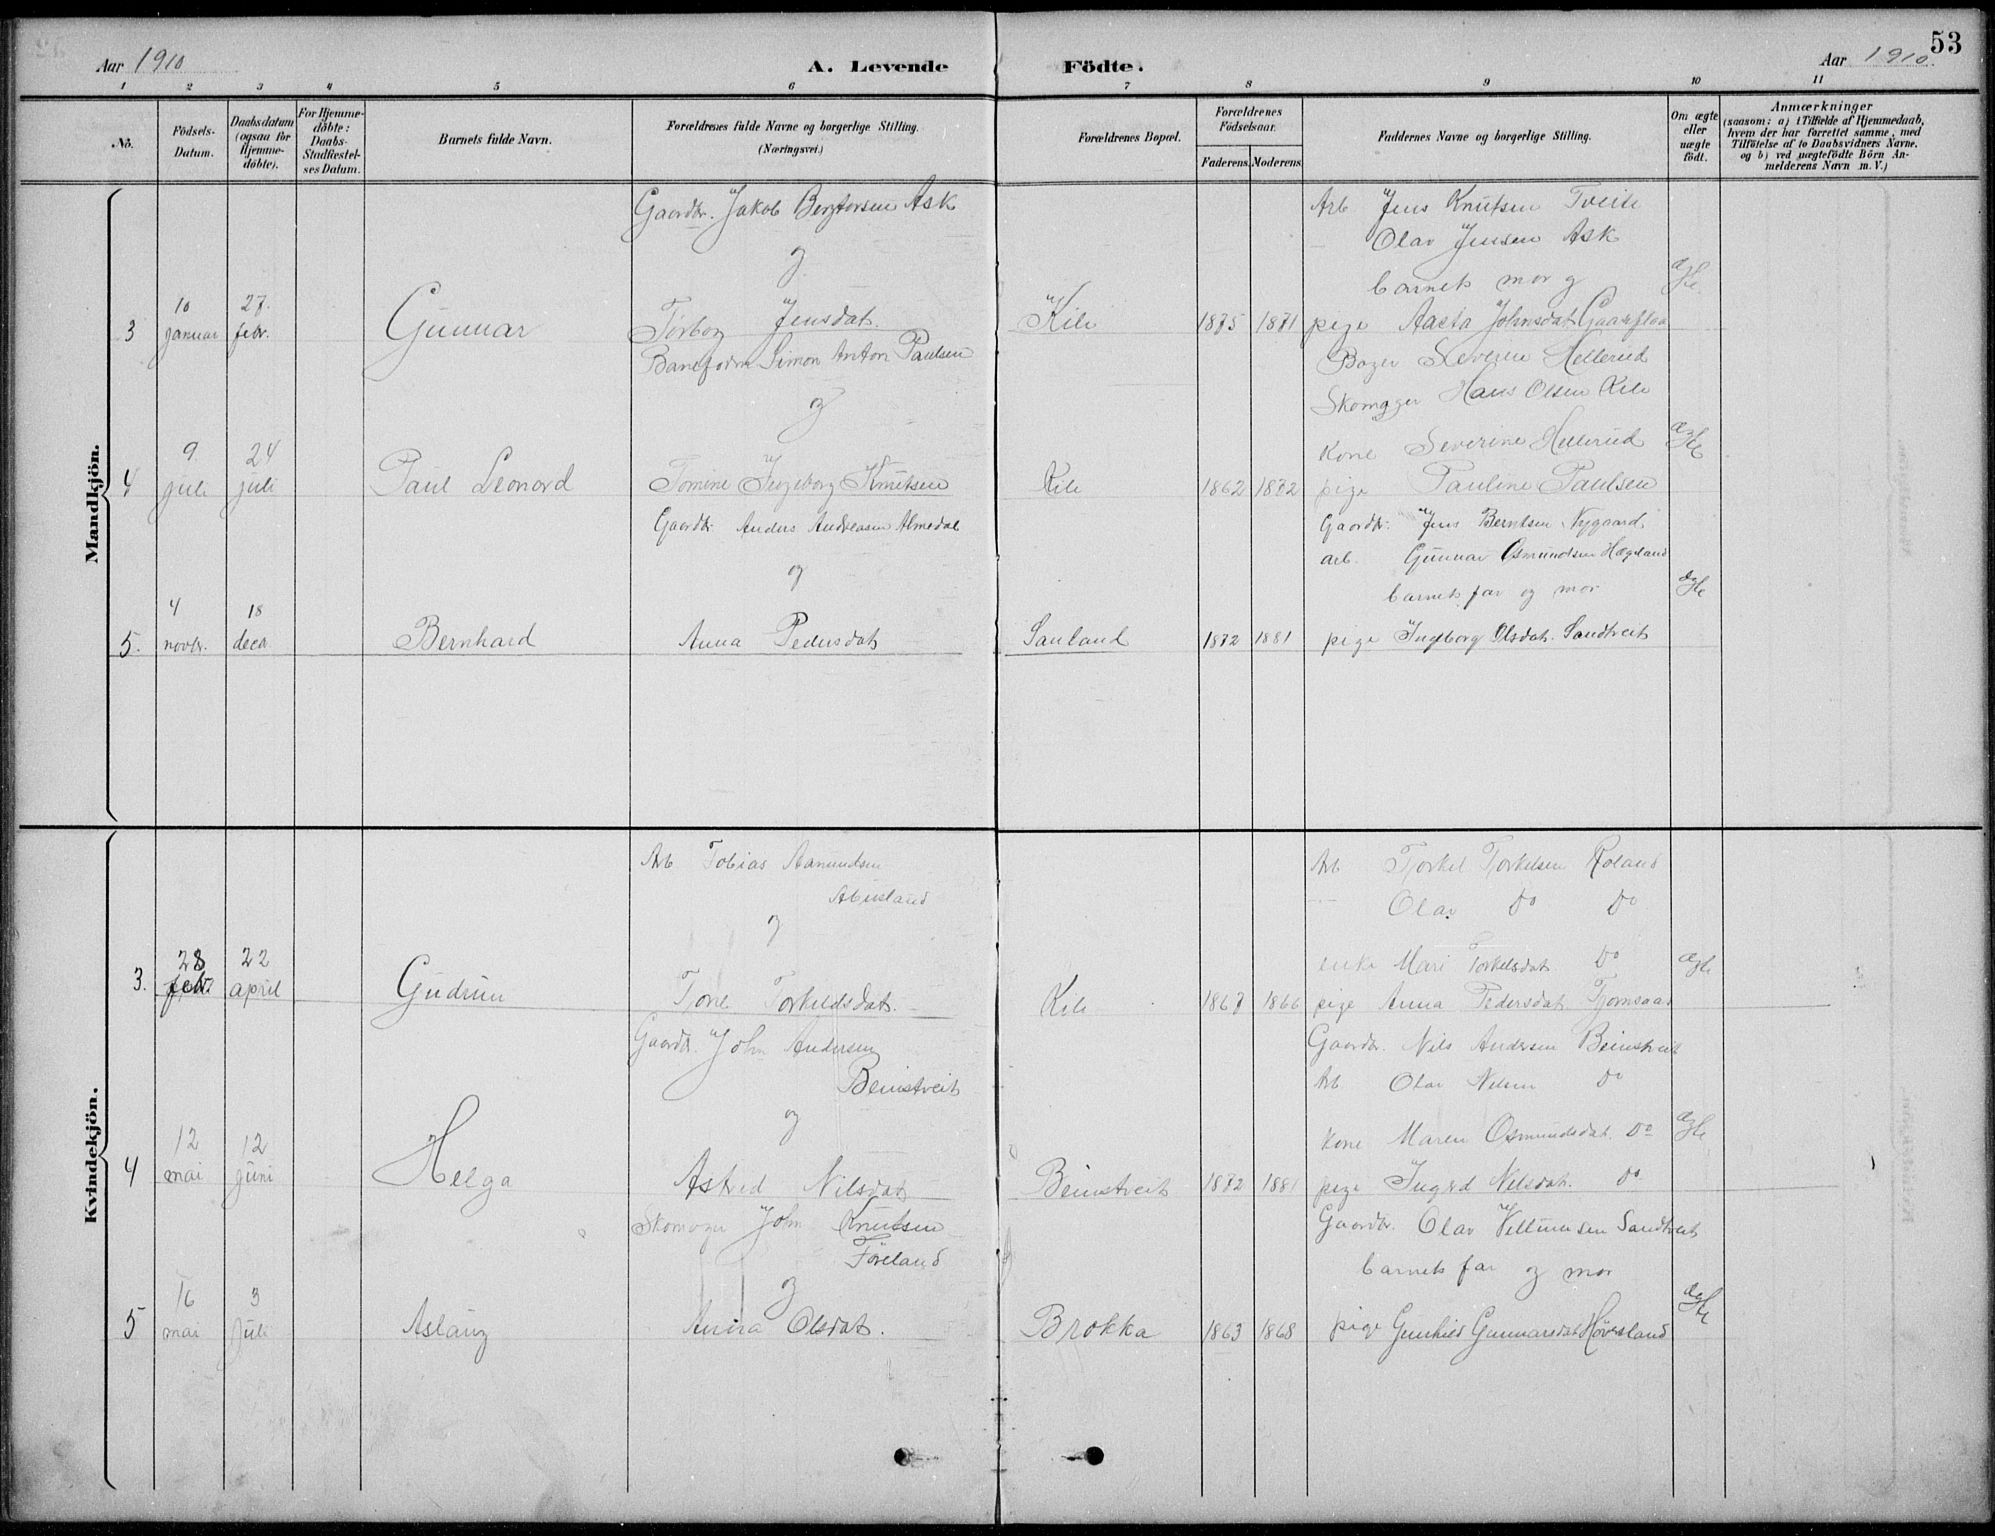 53
Aar 1910
A. Levende Födte.
Aar 1910.
1 2 3 4 5 6 7 8 9 10 11
No.
Födsels-Datum.
Daabsdatum (ogsaa for Hjemmedöbte).
For Hjemmedöbte: Daabs-Stadfæstelses Datum.
Barnets fulde Navn.
Forældrenes fulde Navne og borgerlige Stilling. (Næringsvei.)
Forældrenes Bopæl.
Forældrenes Födselsaar.
Faderens. Moderens.
Faddernes Navne og borgerlige Stilling.
Om ægte eller uægte födt.
Anmærkninger (saasom: a) i Tilfælde af Hjemmedaab, hvem der har forrettet samme, med Tilföielse af to Daabsvidners Navne. og b) ved uægtefödte Börn Anmelderens Navn m. V.)
Mandkjön.
Gaardbr. Jakob Bergtorsen Ask
og
Torbog Jensdat.
3 10 januar 27. febr. Gunnar
Kile 1875 1871
Arb Jens Knutsen Tveite
Olav Jensen Ask
barnets mor og
pige Aasta Johnsdat.
ægte
Baneform Simon Anton Paulsen
og
4 9 juli 24 juli Paul Leonord
Tomine Ingeborg Knutsen
Kile 1862 1872
Severin Hellerud
Hans Olsen Kile
Kone Severine Hellerud
pige Pauline Paulsen
ægte
Gaardbr. Anders Andreasen Almedal
og
5. 4 novbr. 18 decr. Bernhard
Anna Pedersdat
Sauland 1872 1881
Gaardbr. Jens Berntsen Nygaard
arb. Gunnar Osmundsen Hægeland
barnets far og mor
pige Ingeborg Olsdat. Sandtveit
ægte
Kvindekjön.
Arb Tobias Aamundsen
Abusland
og
3. 28 febr 22 april Gudrun
Tone Torkelsdat.
Kile 1867 1866
Arb Torkel Torkelsen Roland
Olav Do Do
enke Mari Torkelsdat. Do
pige Anna Pedersdat. Tjomsaas
ægte
Gaardbr. John Andersen
Beinstveit
og
4 12 mai 12 juni Helga
Astrid Nilsdat
Beinstveit 1872 1881
Gaardbr. Nils Andersen Beinstveit
Arb Olav Nilsen Do
Kone Maren Osmundsdat. Do
pige Ingrd Nilsdat. Do
ægte
Skomager John Knutsen
Föreland
og
5 16 mai 3 juli Aslaug
Anna Olsdat.
Brokka 1863 1868
Gaardbr. Olav Vellumsen Sandtveit
barnets far og mor
pige Gunhild Gunnarsdat Höversland
ægte